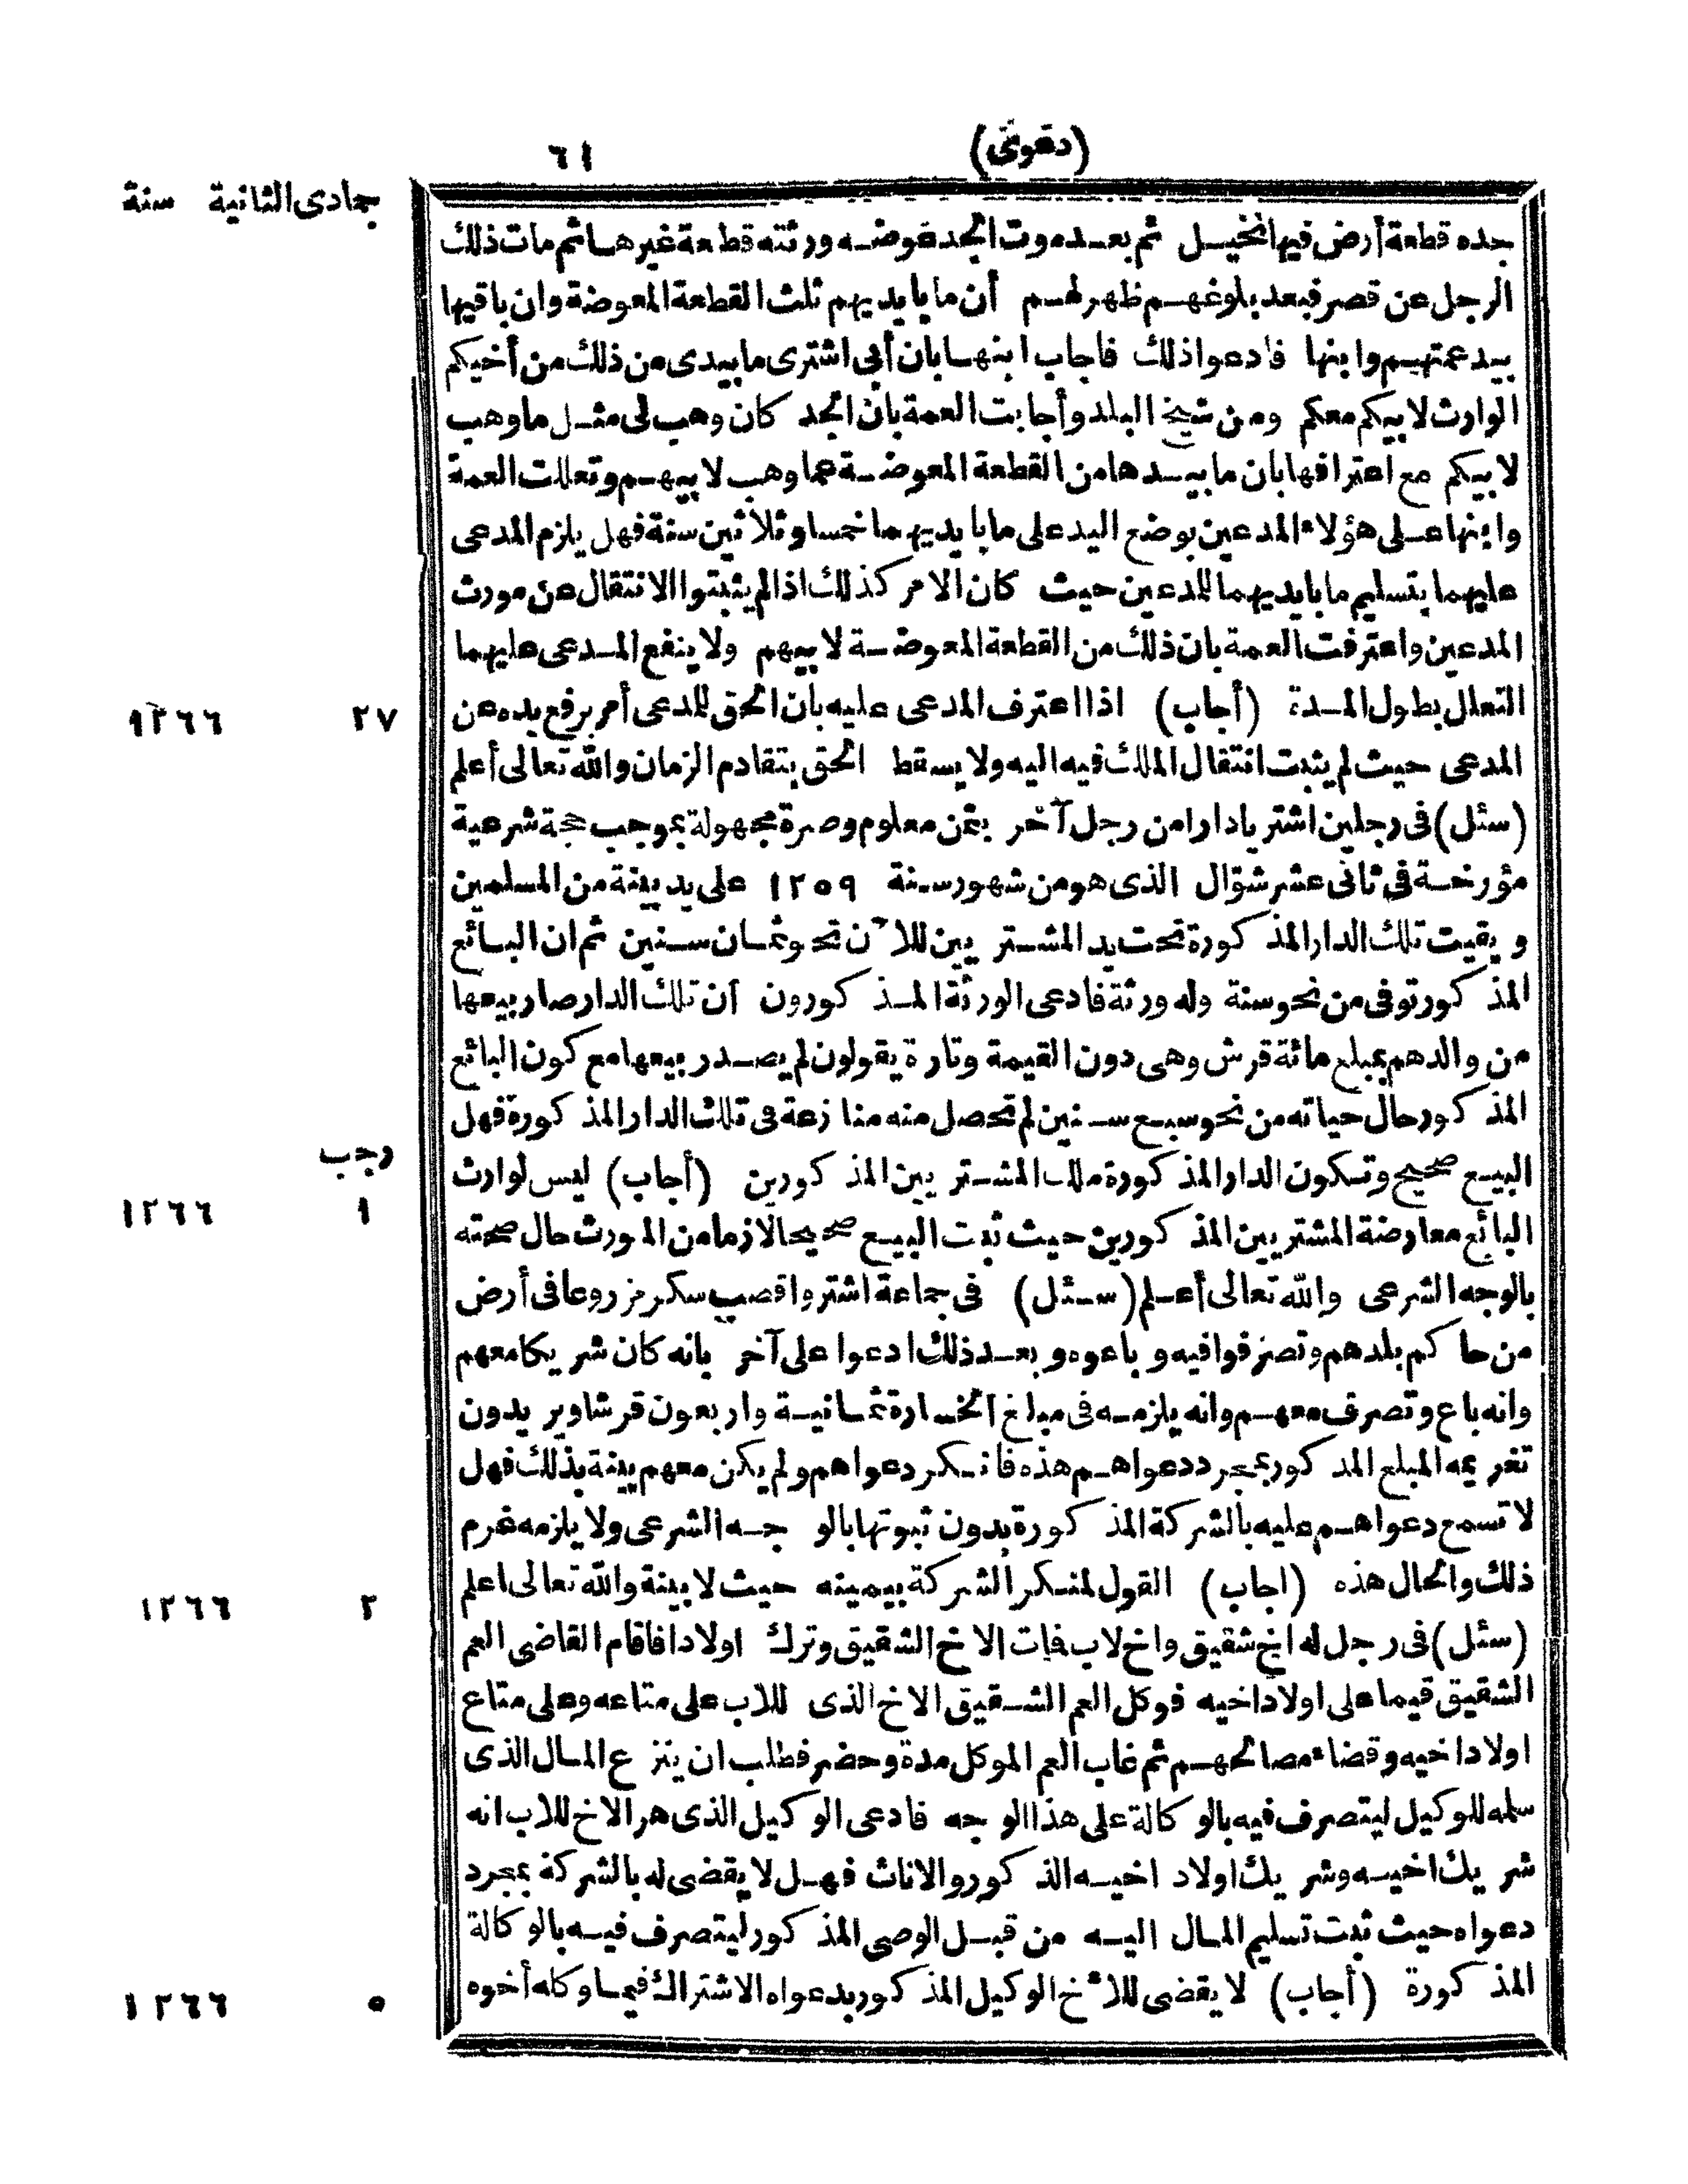 (دعوى)
٦١
جمادى الثانية سنة
جده قطعة أرض فيها نخيل ثم بعد موت الجد عوضه ورثته قطعة غيرها ثم مات ذلك
الرجل عن قصر فبعد بلوغهم ظهر لهم أن ما بايديهم ثلث القطعة المعوضة وان باقيها
بيد عمتهم وابنها فادعوا ذلك فاجاب ابنها بان أبى اشترى ما بيدى من ذلك من أخيكم
الوارث لابيكم معكم ومن شيخ البلد وأجابت العمة بان الجد كان وهب لى مثل ما وهب
لابيكم مع اعترافها بان ما بيدها من القطعة المعوضة عما وهب لابيهم وتعللت العمة
وابنها على هؤلاء المدعين بوضع اليد على ما بايديهما خمسا وثلاثين سنة فهل يلزم المدعى
عليهما بتسليم ما بايديهما للمدعين حيث كان الامر كذلك اذا لم يثبتوا الانتقال عن مورث
المدعين واعترفت العمة بان ذلك من القطعة المعوضة لابيهم ولا ينفع المدعى عليهما
التعلل بطول المدة (أجاب) اذا اعترف المدعى عليه بان الحق للمدعى أمر برفع يده عن
٢٧ ١٢٦٦
المدعى حيث لم يثبت انتقال الملك فيه اليه ولا يسقط الحق بتقادم الزمان والله تعالى أعلم
(سئل) فى رجلين اشتريا دارا من رجل آخر بثمن معلوم وصرة مجهولة بموجب حجة شرعية
مؤرخة فى ثانى عشر شوّال الذى هو من شهور سنة ١٢٥٩ على يد بينة من المسلمين
وبقيت تلك الدار المذكورة تحت يد المشتريين للآن نحو ثمان سنين ثم ان البائع
المذكور توفى من نحو سنة وله ورثة فادعى الورثة المذكورون أن تلك الدار صار بيعها
من والدهم بمبلغ مائة قرش وهى دون القيمة وتارة يقولون لم يصدر بيعها مع كون البائع
المذكور حال حياته من نحو سبع سنين لم تحصل منه منازعة فى تلك الدار المذكورة فهل
رجب
البيع صحيح وتكون الدار المذكورة ملك المشتريين المذكورين (أجاب) ليس لوارث
١ ١٢٦٦
البائع معارضة المشتريين المذكورين حيث ثبت البيع صحيحا لازما من المورث حال صحته
بالوجه الشرعى والله تعالى أعلم (سئل) فى جماعة اشتروا قصب سكر مزروعا فى أرض
من حاكم بلدهم وتصرفوا فيه وباعوه وبعد ذلك ادعوا على آخر بانه كان شريكا معهم
وانه باع وتصرف معهم وانه يلزمه فى مبلغ الخسارة ثمانية واربعون قرشا ويريدون
تغريمه المبلغ المذكور بمجرد دعواهم هذه فانكر دعواهم ولم يكن معهم بينة بذلك فهل
لا تسمع دعواهم عليه بالشركة المذكورة بدون ثبوتها بالوجه الشرعى ولا يلزمه غرم
ذلك والحال هذه (اجاب) القول لمنكر الشركة بيمينه حيث لا بينة والله تعالى اعلم
٢ ١٢٦٦
(سئل) فى رجل له اخ شقيق واخ لاب فمات الاخ الشقيق وترك اولادا فاقام القاضى العم
الشقيق قيما على اولاد اخيه فوكل العم الشقيق الاخ الذى للاب على متاعه وعلى متاع
اولاد اخيه وقضاء مصالحهم ثم غاب العم الموكل مدة وحضر فطلب ان ينزع المال الذى
سلمه للوكيل ليتصرف فيه بالوكالة على هذا الوجه فادعى الوكيل الذى هو الاخ للاب انه
شريك اخيه وشريك اولاد اخيه الذكور والاناث فهل لا يقضى له بالشركة بمجرد
دعواه حيث ثبت تسليم المال اليه من قبل الوصى المذكور ليتصرف فيه بالوكالة
المذكورة (أجاب) لا يقضى للأخ الوكيل المذكور بدعواه الاشتراك فيما وكله أخوه
٥ ١٢٦٦